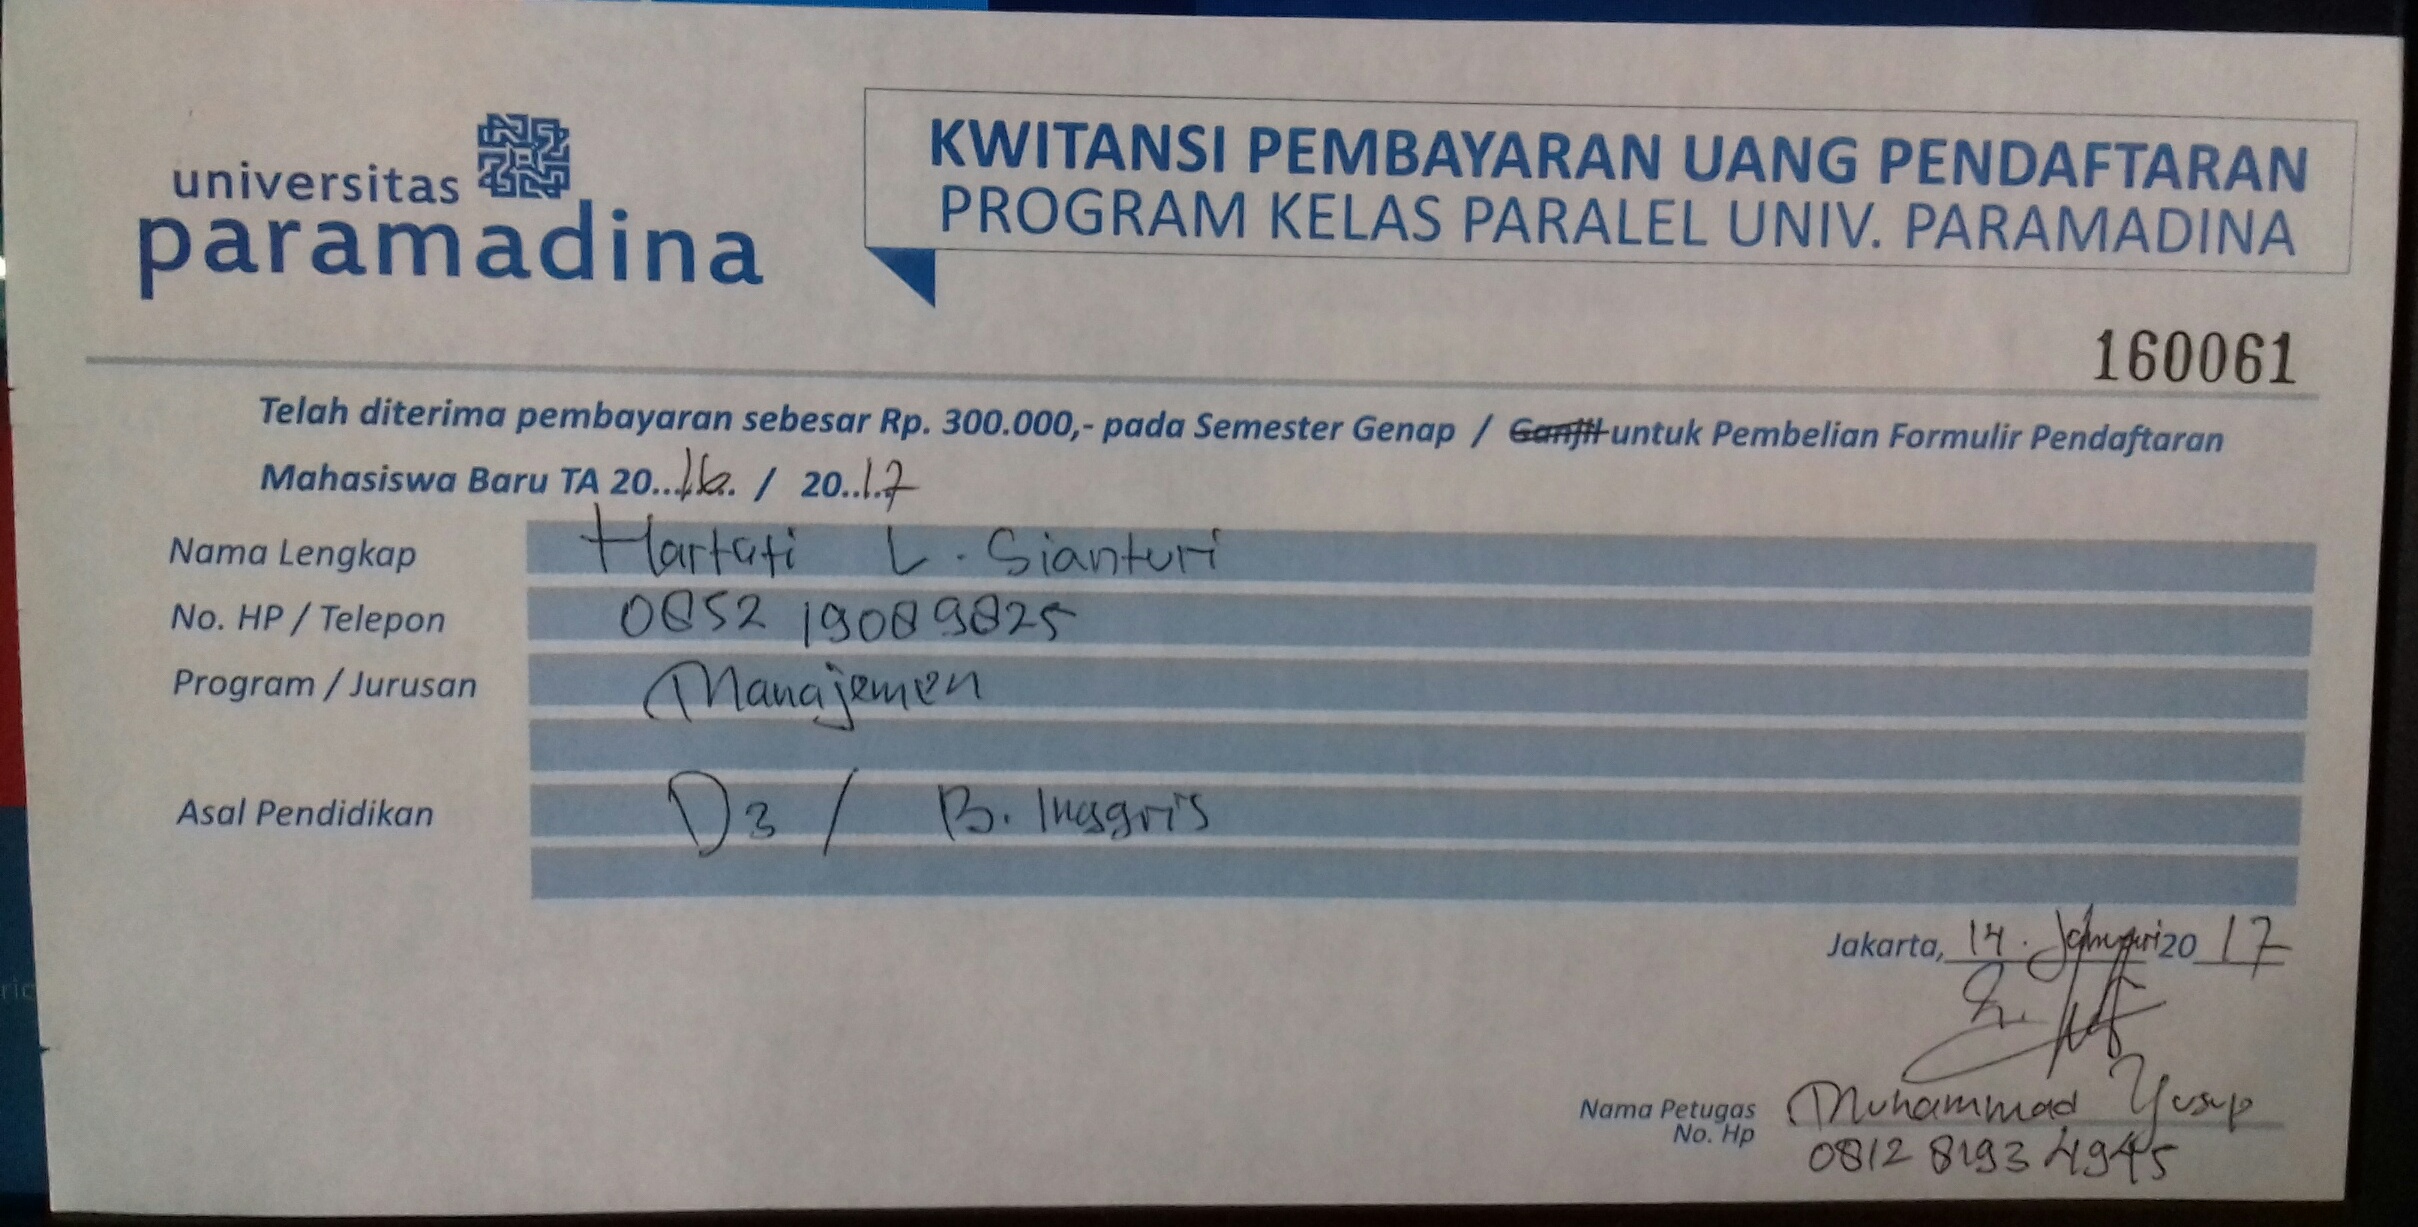 universitas
paramadina
KWITANSI PEMBAYARAN UANG PENDAFTARAN
PROGRAM KELAS PARALEL UNIV. PARAMADINA
160061
Telah diterima pembayaran sebesar Rp. 300.000,- pada Semester Genap / Ganjil untuk Pembelian Formulir Pendaftaran
Mahasiswa Baru TA 20..16.. / 20..17
Nama Lengkap Hartati L. Sianturi
No. HP / Telepon 0852 19089825
Program / Jurusan Manajemen
Asal Pendidikan D3 / B. Inggris
Jakarta, 14. Januari 2017
Nama Petugas Muhammad Yusup
No. Hp 0812 8193 4945